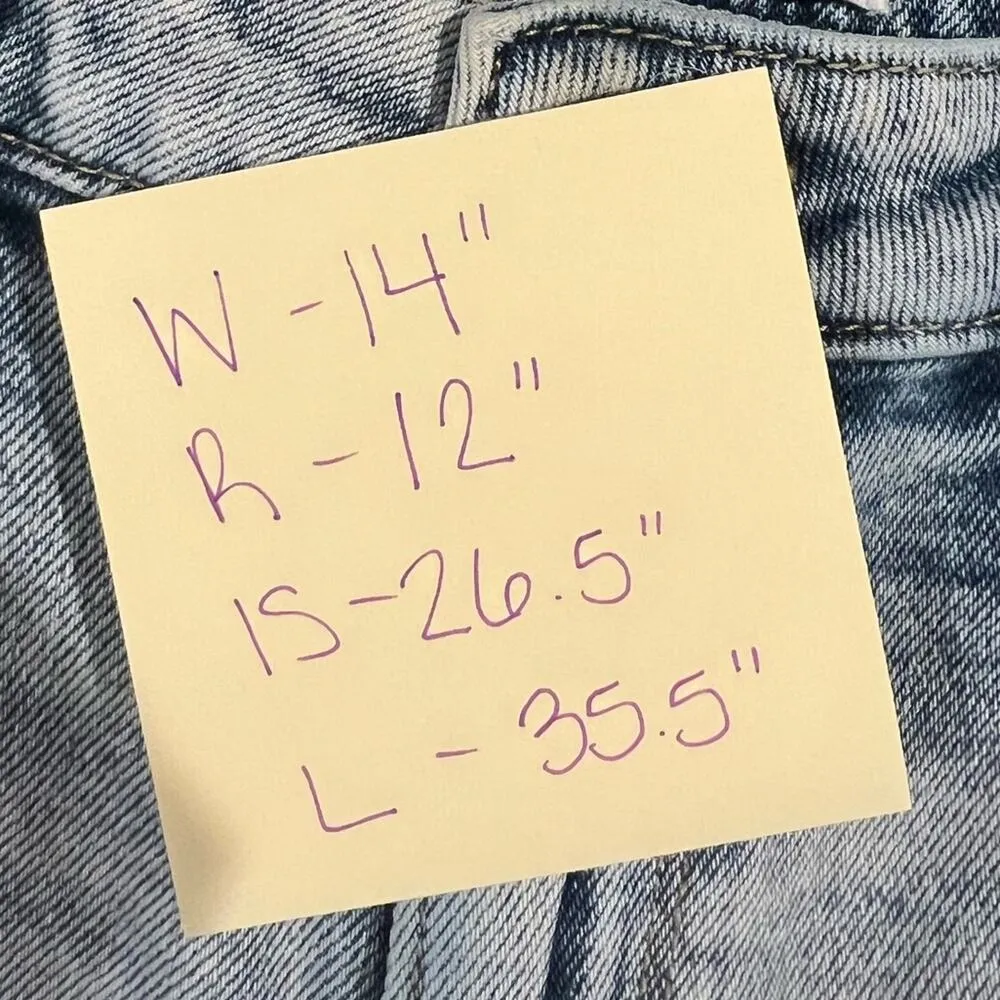 W - 14"
R - 12"
IS - 26.5"
L - 35.5"